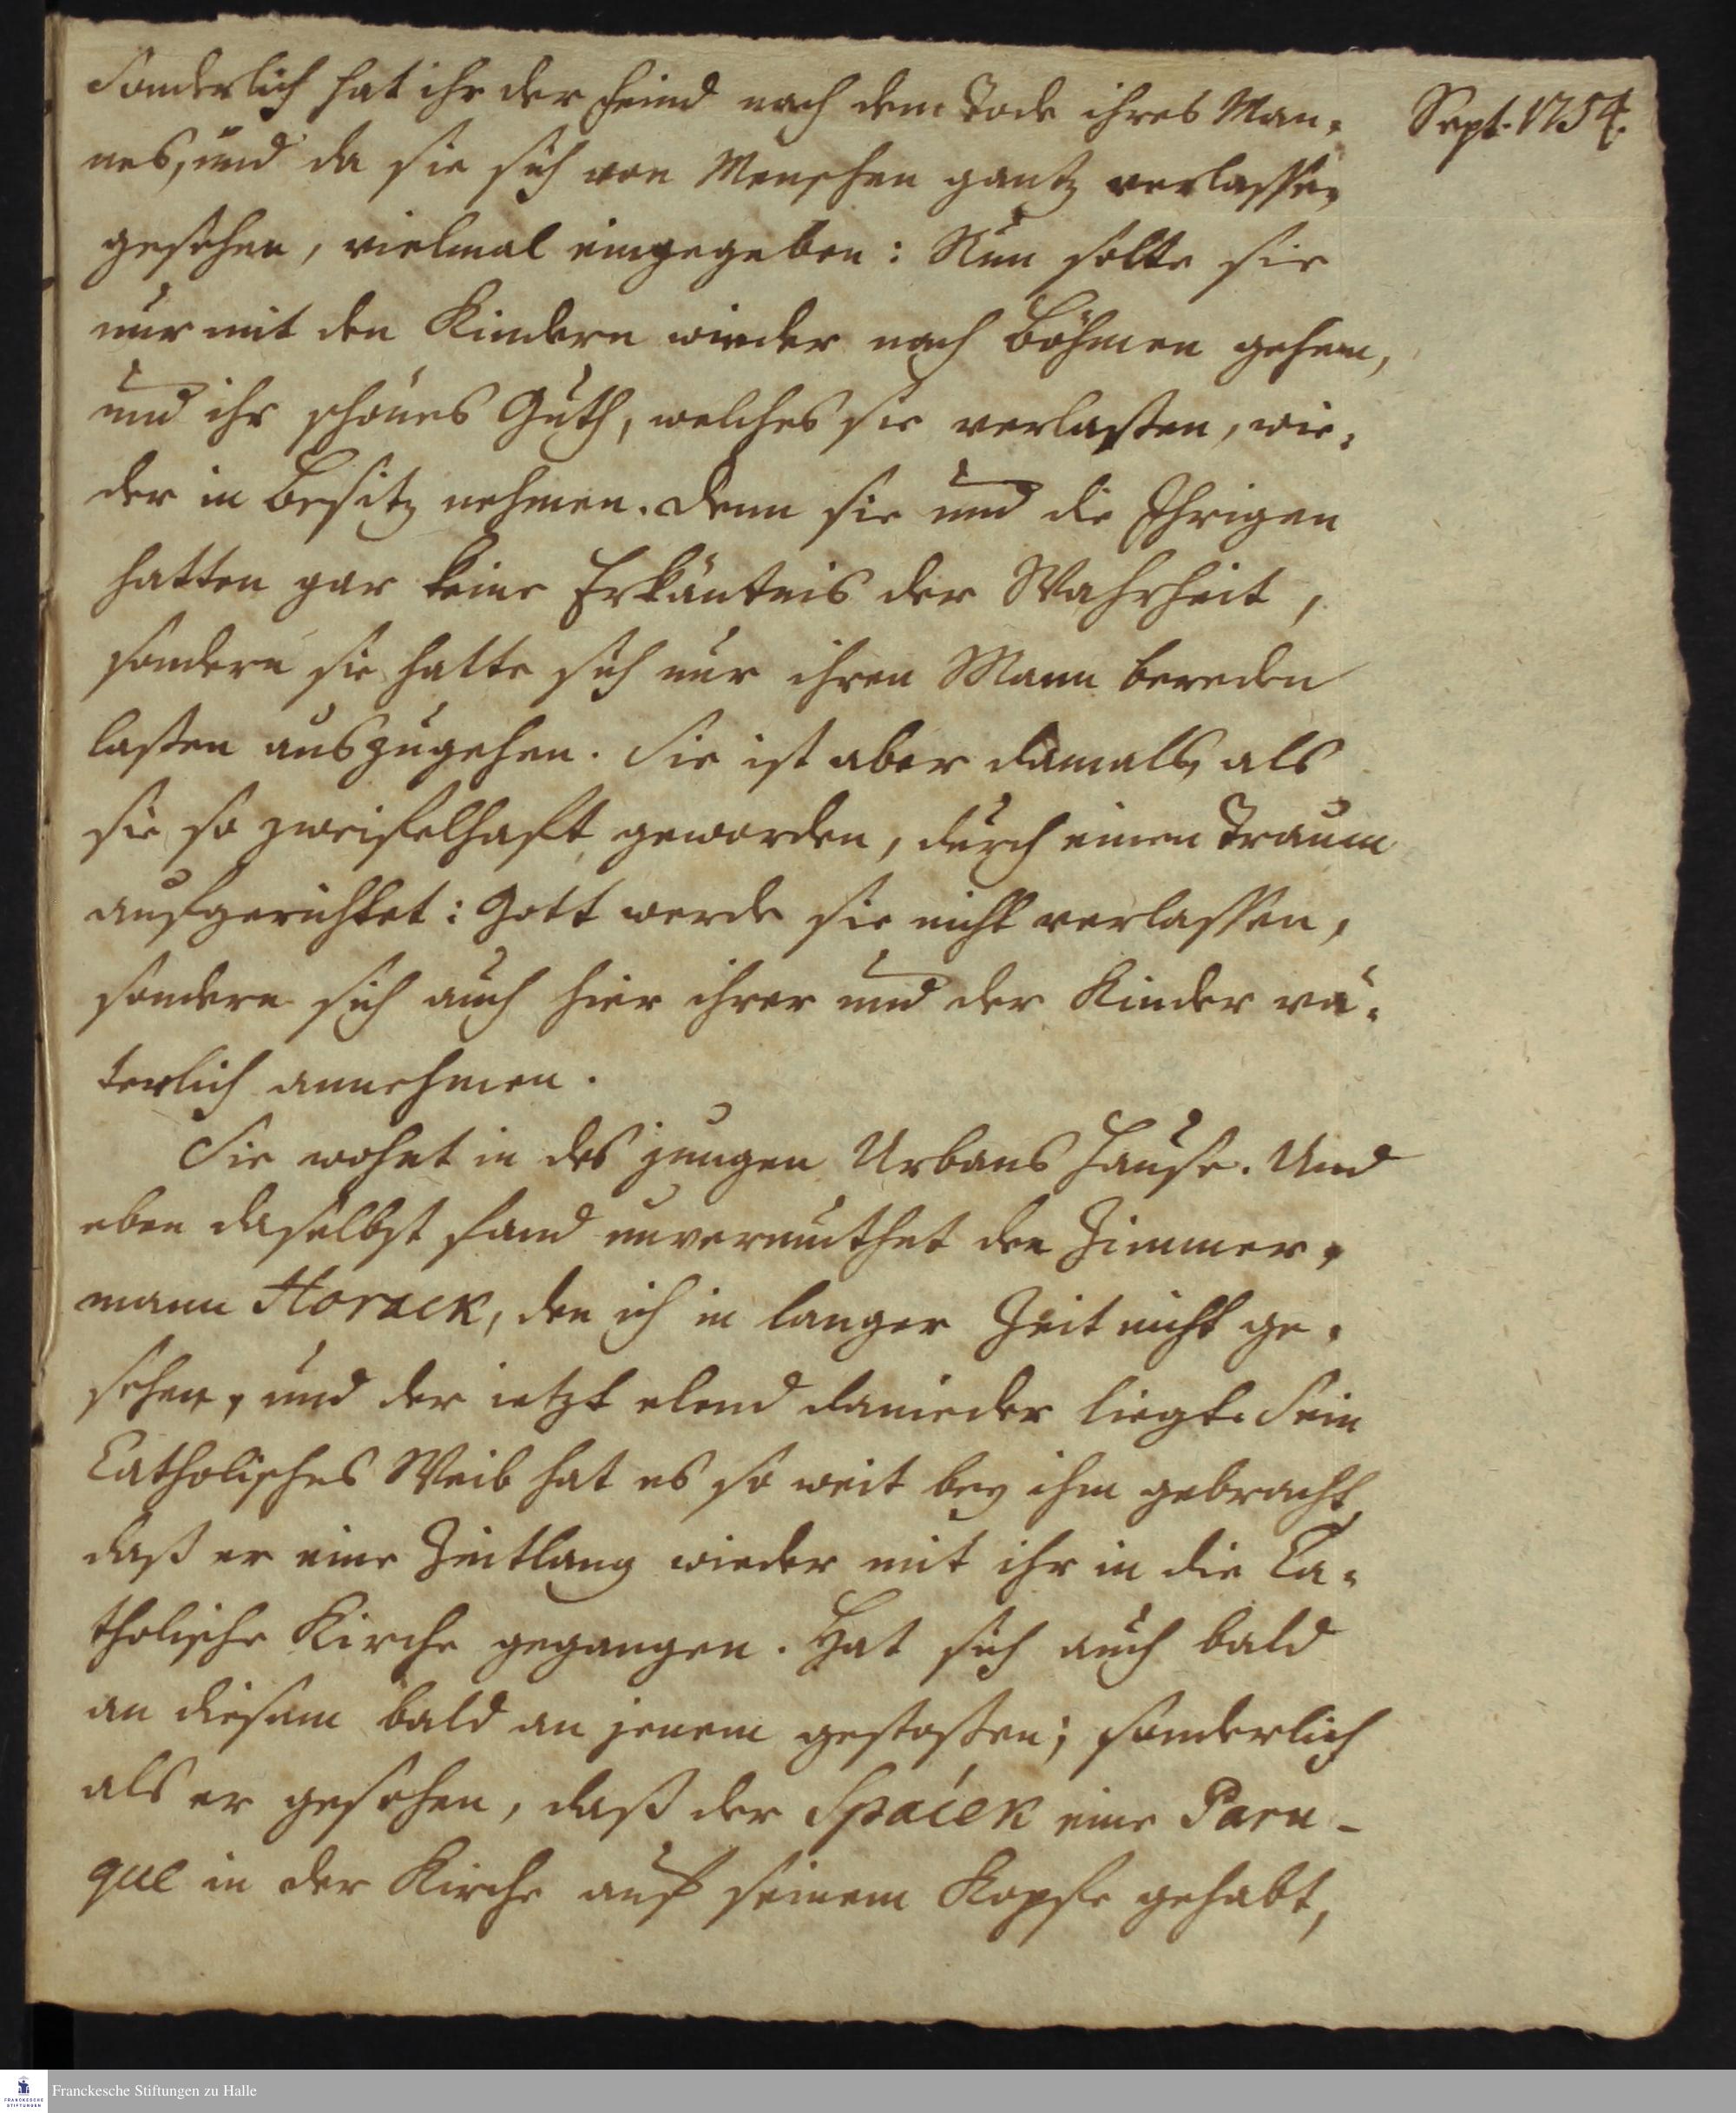 Sonderlich hat ihr der Feind nach dem Tode ihres Man-
Sept. 1754.
nes, und da sie sich von Menschen gantz verlassen
gesehen, vielmal eingegeben: Nun solte sie
nur mit den Kindern wieder nach Böhmen gehen,
und ihr schönes Guth, welches sie verlaßen, wie-
der in Besitz nehmen. Denn sie und die Ihrigen
hatten gar keine Erkäntnis der Wahrheit,
sondern sie hatte sich nur ihren Mann bereden
laßen auszugehen. Sie ist aber damals, als
sie so zweifelhaft geworden, durch einen Traum
aufgerichtet: Gott werde sie nicht verlassen,
sondern sich auch hier ihrer und der Kinder vä-
terlich annehmen.
Sie wohnt in des jungen Urbans Hause. Und
eben daselbst fand unvermuthet den Zimmer-
mann Horack, den ich in langer Zeit nicht ge-
sehen, und der ietzt elend danieder liegt. Sein
Catholisches Weib hat es so weit bey ihm gebracht,
daß er eine Zeitlang wieder mit ihr in die Ca-
tholische Kirche gegangen. Hat sich auch bald
an diesem bald an jenem gestoßen; sonderlich
als er gesehen, daß der Spaćek eine Paru-
que in der Kirche auf seinem Kopfe gehabt,
Franckesche Stiftungen zu Halle
FRANCKESCHE
STIFTUNGEN